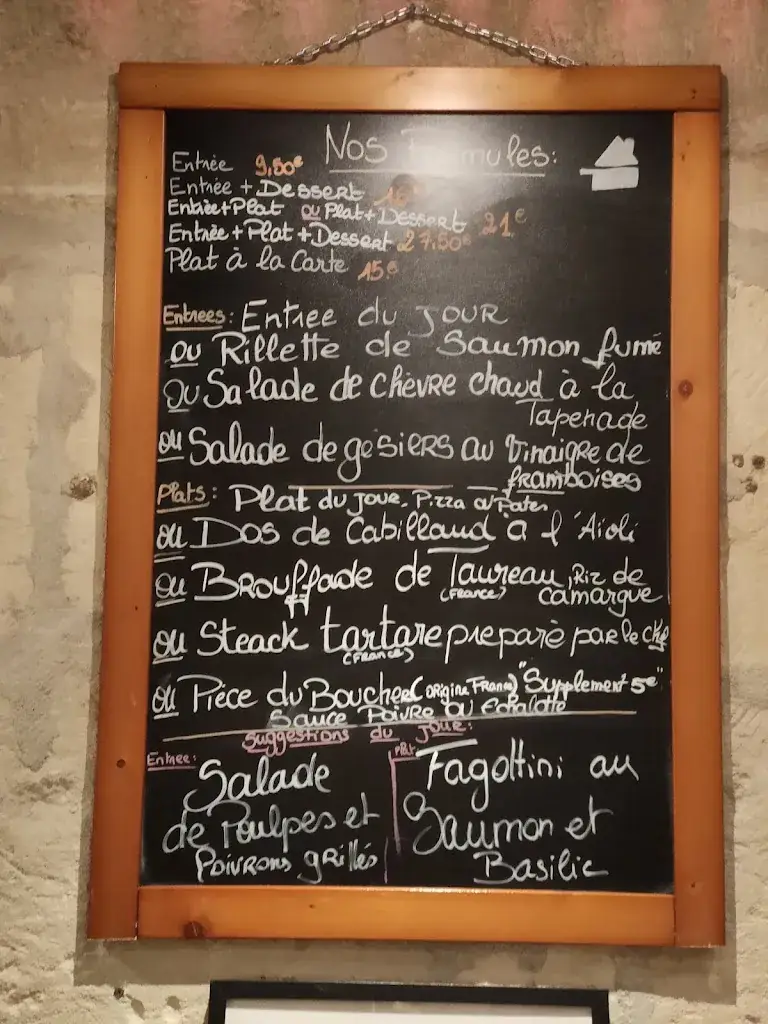 Nos Formules:
Entrée 9,50€
Entrée + Dessert
Entrée+Plat ou Plat+Dessert 21€
Entrée+Plat+Dessert 27.50€
Plat à la Carte 15€
Entrees: Entree du jour
ou Rillette de Saumon fumé
ou Salade de chèvre chaud à la
Tapenade
ou Salade de gésiers au Vinaigre de
framboises
Plats: Plat du jour, Pizza ou Pates
ou Dos de Cabillaud à l'Aïoli
ou Brouffade de Taureau, Riz de
(France) camargue
ou Steack tartare preparè par le chef
(France)
ou Pièce du Boucher (origine France) "Supplement 5€"
Sauce Poivre ou Echalotte
Suggestions du jour:
Entree:
Salade
de Poulpes et
Poivrons grillés
Plat:
Fagottini au
Saumon et
Basilic